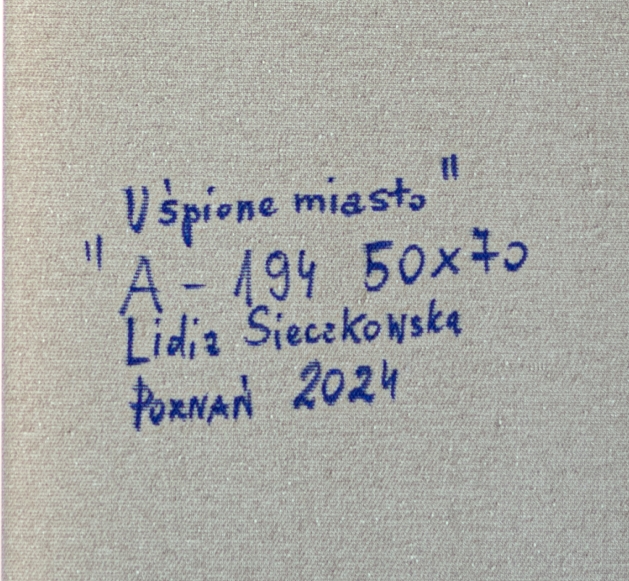 Uśpione miasto"
" A - 194 50x70
Lidia Sieczkowska
POZNAŃ 2024